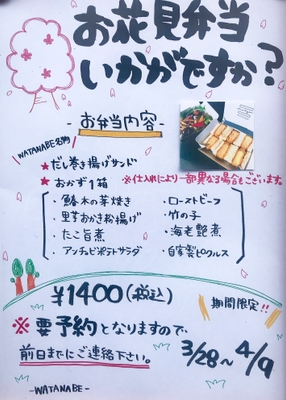 お花見弁当
いかがですか？
- お弁当内容 -
WATANABE名物
★だし巻き揚げサンド
★おかず1箱
※仕入れにより一部異なる場合もございます。
・鰆木の芽焼き
・里芋おかき粉揚げ
・たこ旨煮
・アンチョビポテトサラダ
・ローストビーフ
・竹の子
・海老艶煮
・自家製ピクルス
¥1400(税込)
期間限定!!
※要予約となりますので
前日までにご連絡下さい。
3/28〜4/9
-WATANABE-